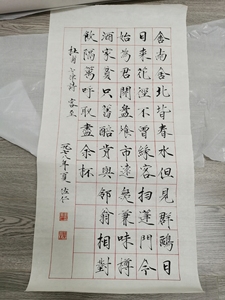 舍南舍北皆春水但見群鷗日
日來花徑不曾緣客掃蓬門今
始為君開盤飧市遠無兼味樽
酒家貧只舊醅肯與鄰翁相對
飲隔籬呼取盡餘杯
杜甫詩 客至
年夏 仁